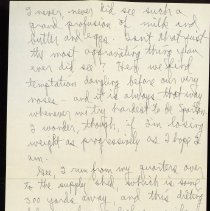 I never never did see such a
grand profusion of milk and
butter and eggs. Isn't that just
the most aggravating thing you
ever did see? Here we find
temptation dangling before our very
noses - and it is always that way
whenever we try hardest to be Spartan.
I wonder, though, if I'm losing
weight as progressively as I hope I
am.
Gee, I run from my quarters over
to the supply shed, which is some
300 yards away, and this dieting